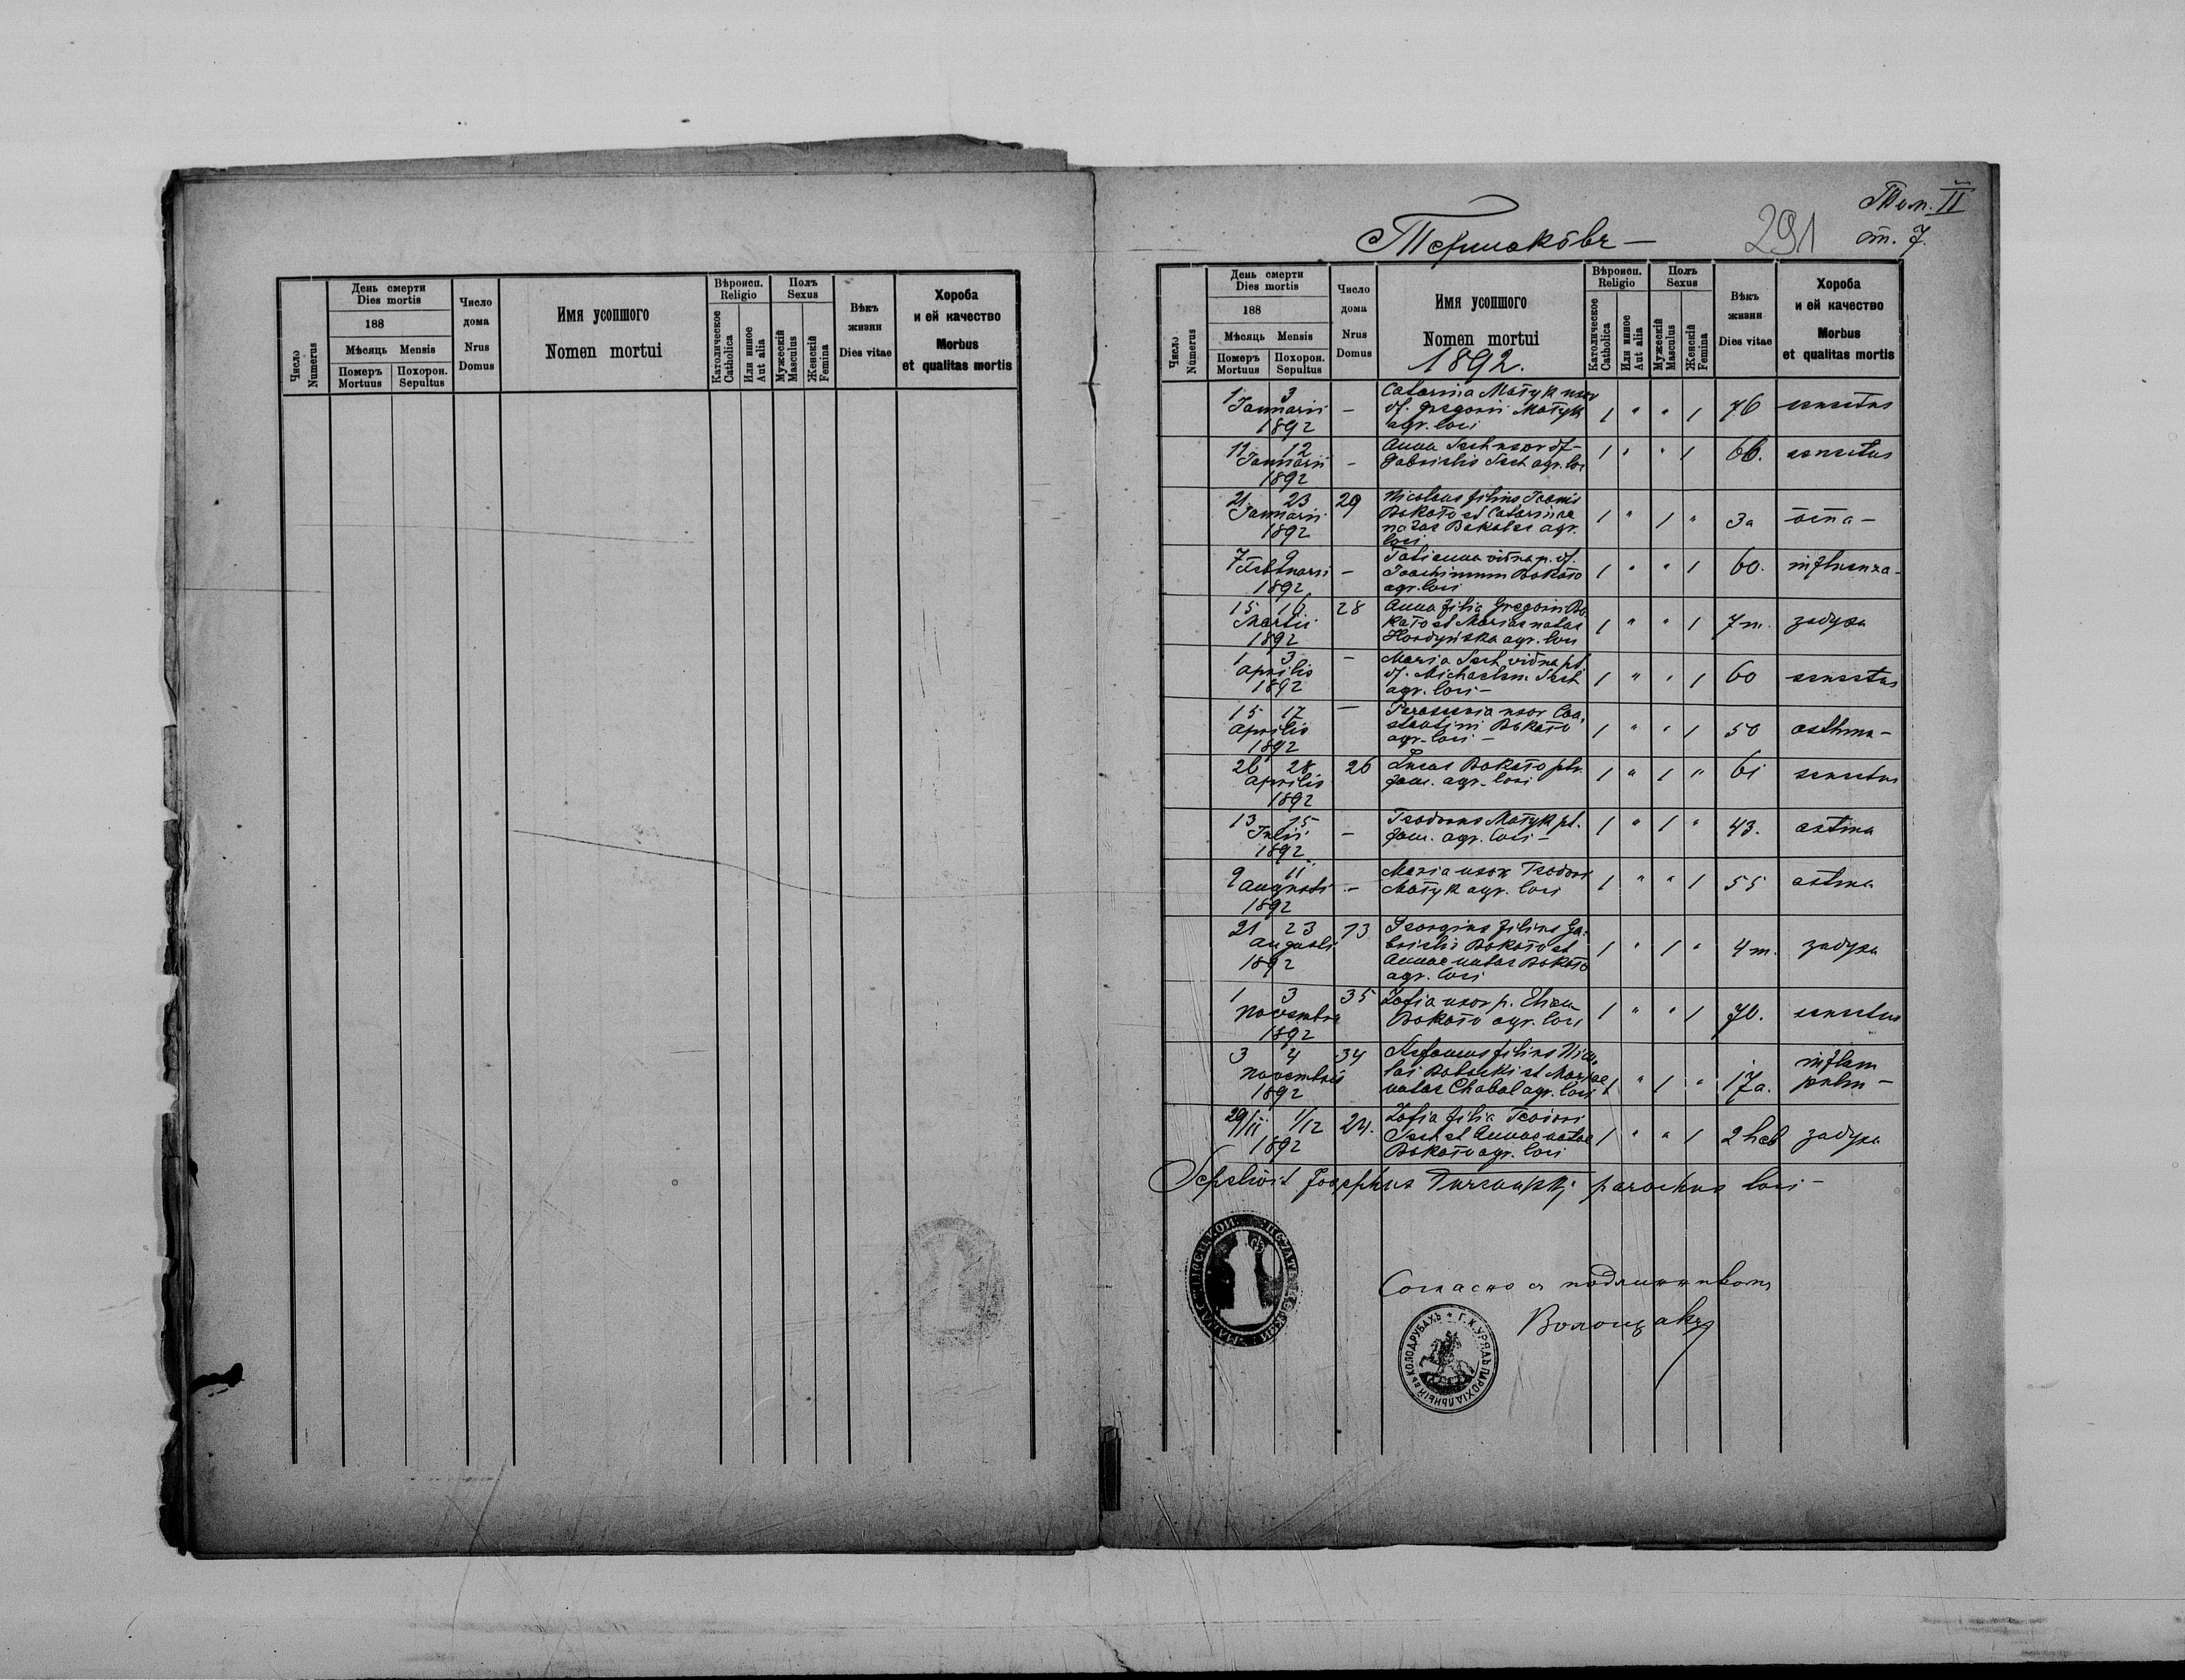 Число Numerus
День смерти
Dies mortis
188
Мѣсяць Mensis
Померъ Mortuus
Похорон. Sepultus
Число дома
Nrus Domus
Имя усопшого
Nomen mortui
Вѣроисп.
Religio
Католическое Catholica
Или инное Aut alia
Полъ
Sexus
Мужескій Masculus
Женскій Femina
Вѣкъ жизни
Dies vitae
Хороба
и ей качество
Morbus
et qualitas mortis
Том. II
291
ст. 7.
Число Numerus
День смерти
Dies mortis
188
Мѣсяць Mensis
Померъ Mortuus
Похорон. Sepultus
Число дома
Nrus Domus
Имя усопшого
Nomen mortui
1892.
Вѣроисп.
Religio
Католическое Catholica
Или инное Aut alia
Полъ
Sexus
Мужескій Masculus
Женскій Femina
Вѣкъ жизни
Dies vitae
Хороба
и ей качество
Morbus
et qualitas mortis
1 3 Catarina Matyk uxor
Januarii — df. Gregorii Matyk 1 " " 1 76 senectus
1892 agr. loci
11 12 Anna uxor df.
Januarii — Gabrielis agr. loci 1 " " 1 66. senectus
1892
21 23 29 Nicolaus filius Joanis
Januarii Bokoto et Catarinae 1 " 1 " 3a оспа —
1892 natae agr.
loci
7 9 Tatianna vidua p. df.
Februarii — Joachimum Bokoto 1 " " 1 60. influenza —
1892 agr. loci
15 16 28 Anna filia Gregorii Bo-
Martii koto et Mariae natae 1 " " 1 7 m. задуха
1892 Hordyńska agr. loci
1 3 — Maria vidua pt.
Aprilis df. Michaelem 1 " " 1 60 senectus
1892 agr. loci —
15 17 — uxor Con-
Aprilis stantini Bokoto 1 " " 1 50 asthma —
1892 agr. loci —
26 28 26 Lucas Bokoto ptr.
Aprilis fam. agr. loci 1 " 1 " 61 senectus
1892
13 15 Teodorus Matyk pt.
Julii — fam. agr. loci — 1 " 1 " 43. astma
1892
9 11 Maria uxor Teodori
Augusti — Matyk agr. loci 1 " " 1 55 astma
1892
21 23 13 Georgius filius Ga-
Augusti brielis Bokoto et 1 " 1 " 4 m. задуха
1892 Annae natae Bokoto
agr. loci
1 3 35 Zofia uxor p. Eliam
Novembris Bokoto agr. loci 1 " " 1 70. senectus
1892
3 4 34 Stefanus filius Nico-
Novembris lai et Mariae 1 " 1 " 17a. inflam
1892 natae Chabal agr. loci pulm —
29/11 1/12 24. Zofia filia Teodori
et Annae natae 1 " " 1 2 heb задуха
1892 Bokoto agr. loci
Sepelivit Josephus parochus loci —
Согласно съ подлинникомъ
Волощакъ
Г. К. УРЯДЪ ПАРОХІАЛЬНЫЙ въ КОЛОДРУБАХЪ